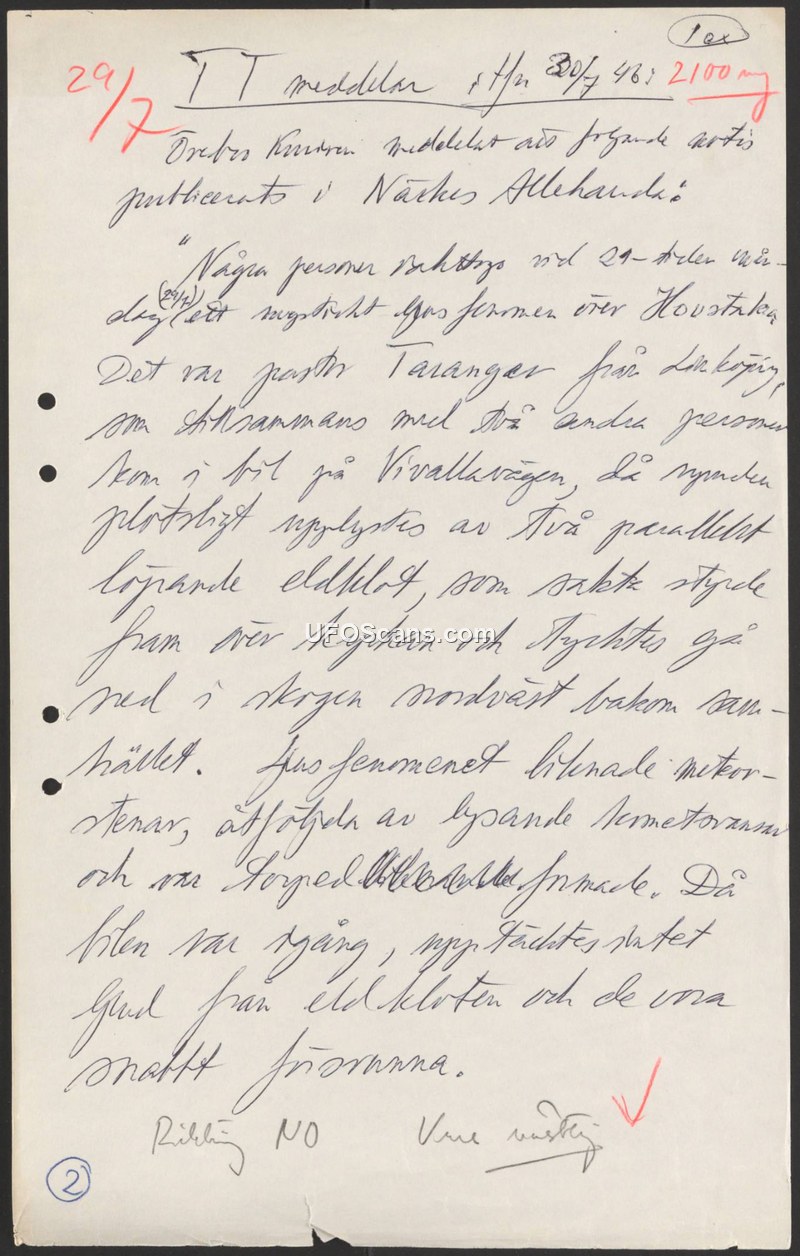 1 ex
29/7
TT meddelar i t/n 30/7 46: 2100
Örebro Kuriren meddelat att följande notis
publicerats i Närkes Allehanda:
"Några personer iakttogo vid 21-tiden mån-
(29/7)
dag ett mystiskt ljusfenomen över Hovstaka
Det var pastor Taranger från Linköping,
som tillsammans med två andra personer
kom i bil på Vivallavägen, då rymden
plötsligt upplystes av två parallellt
löpande eldklot, som sakta styrde
fram över trakten och tycktes gå
ned i skogen nordväst bakom sam-
hället. Ljusfenomenet liknade meteor-
stenar, åtföljda av lysande kometsvansar
och var torped formade. Då
bilen var igång, upptäcktes intet
ljud från eldkloten och de voro
snabbt försvunna.
Riktning NO Vere västlig
2
UFOScans.com